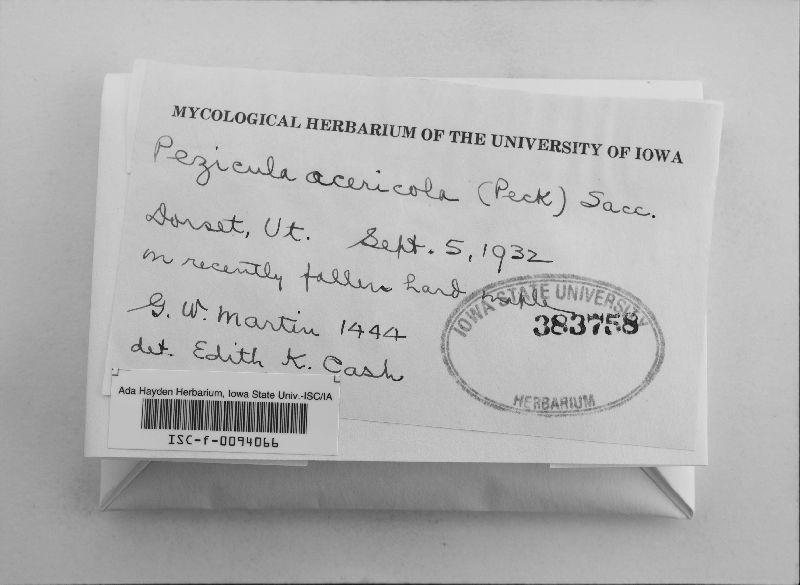 MYCOLOGICAL HERBARIUM OF THE UNIVERSITY OF IOWA
Pezicula acericola (Peck) Sacc.
Dorset, Vt. Sept. 5, 1932
on recently fallen hard maple
G. W. Martin 1444
det. Edith K. Cash
IOWA STATE UNIVERSITY
383758
HERBARIUM
Ada Hayden Herbarium, Iowa State Univ.-ISC/IA
ISC-f-0094066